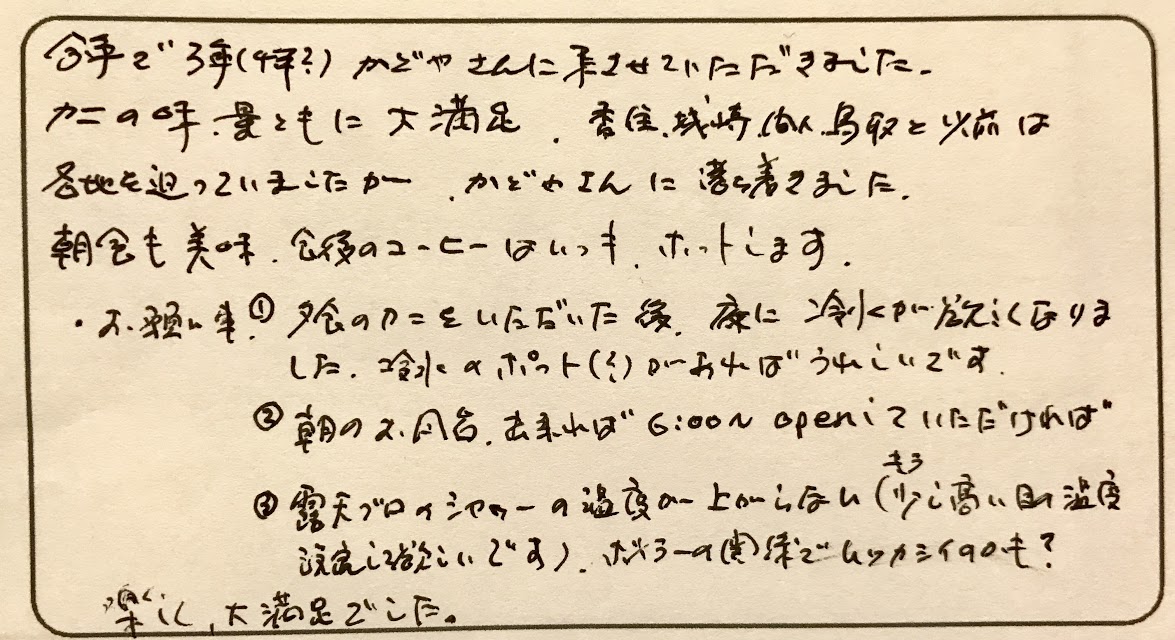 今年で3年(4年?) かどやさんに来させていただきました。
カニの味、量ともに大満足、香住、城崎、鳥取と以前は
各地を迫っていましたが、かどやさんに落ち着きました。
朝食も美味、食後のコーヒーはいつも、ホットします。
・お願い事! ① 夕食のカニをいただいた後、床に冷水が欲しくなりま
した、冷水のポット(小)があればうれしいです。
② 朝のお風呂、出来れば6:00〜openしていただければ
③ 露天ブロのシャワーの温度が上がらない(もう少し高い目の温度
設定して欲しいです)、ボイラーの関係でムツカシイのかも?
楽しく、大満足でした。